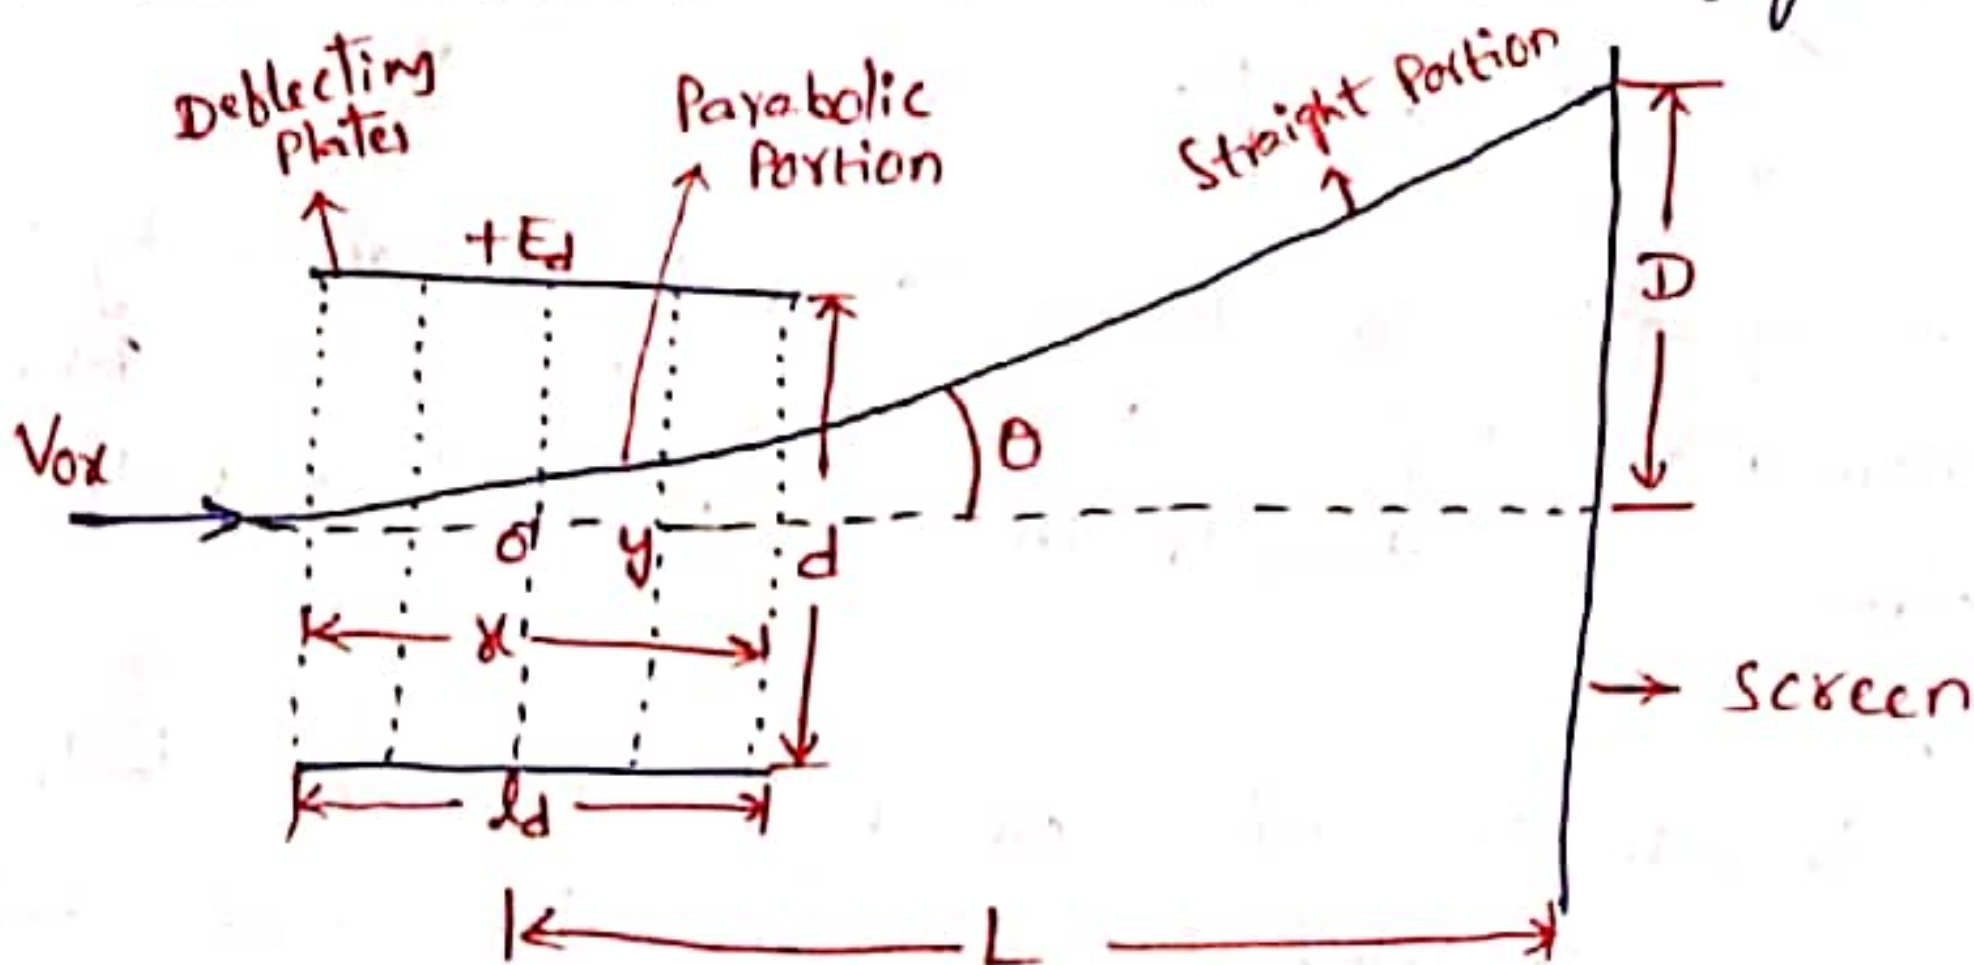 Deflecting
Plates
Parabolic
Portion
Straight Portion
+Ed
D
Vox
θ
o'
y
d
x
Screen
ld
L